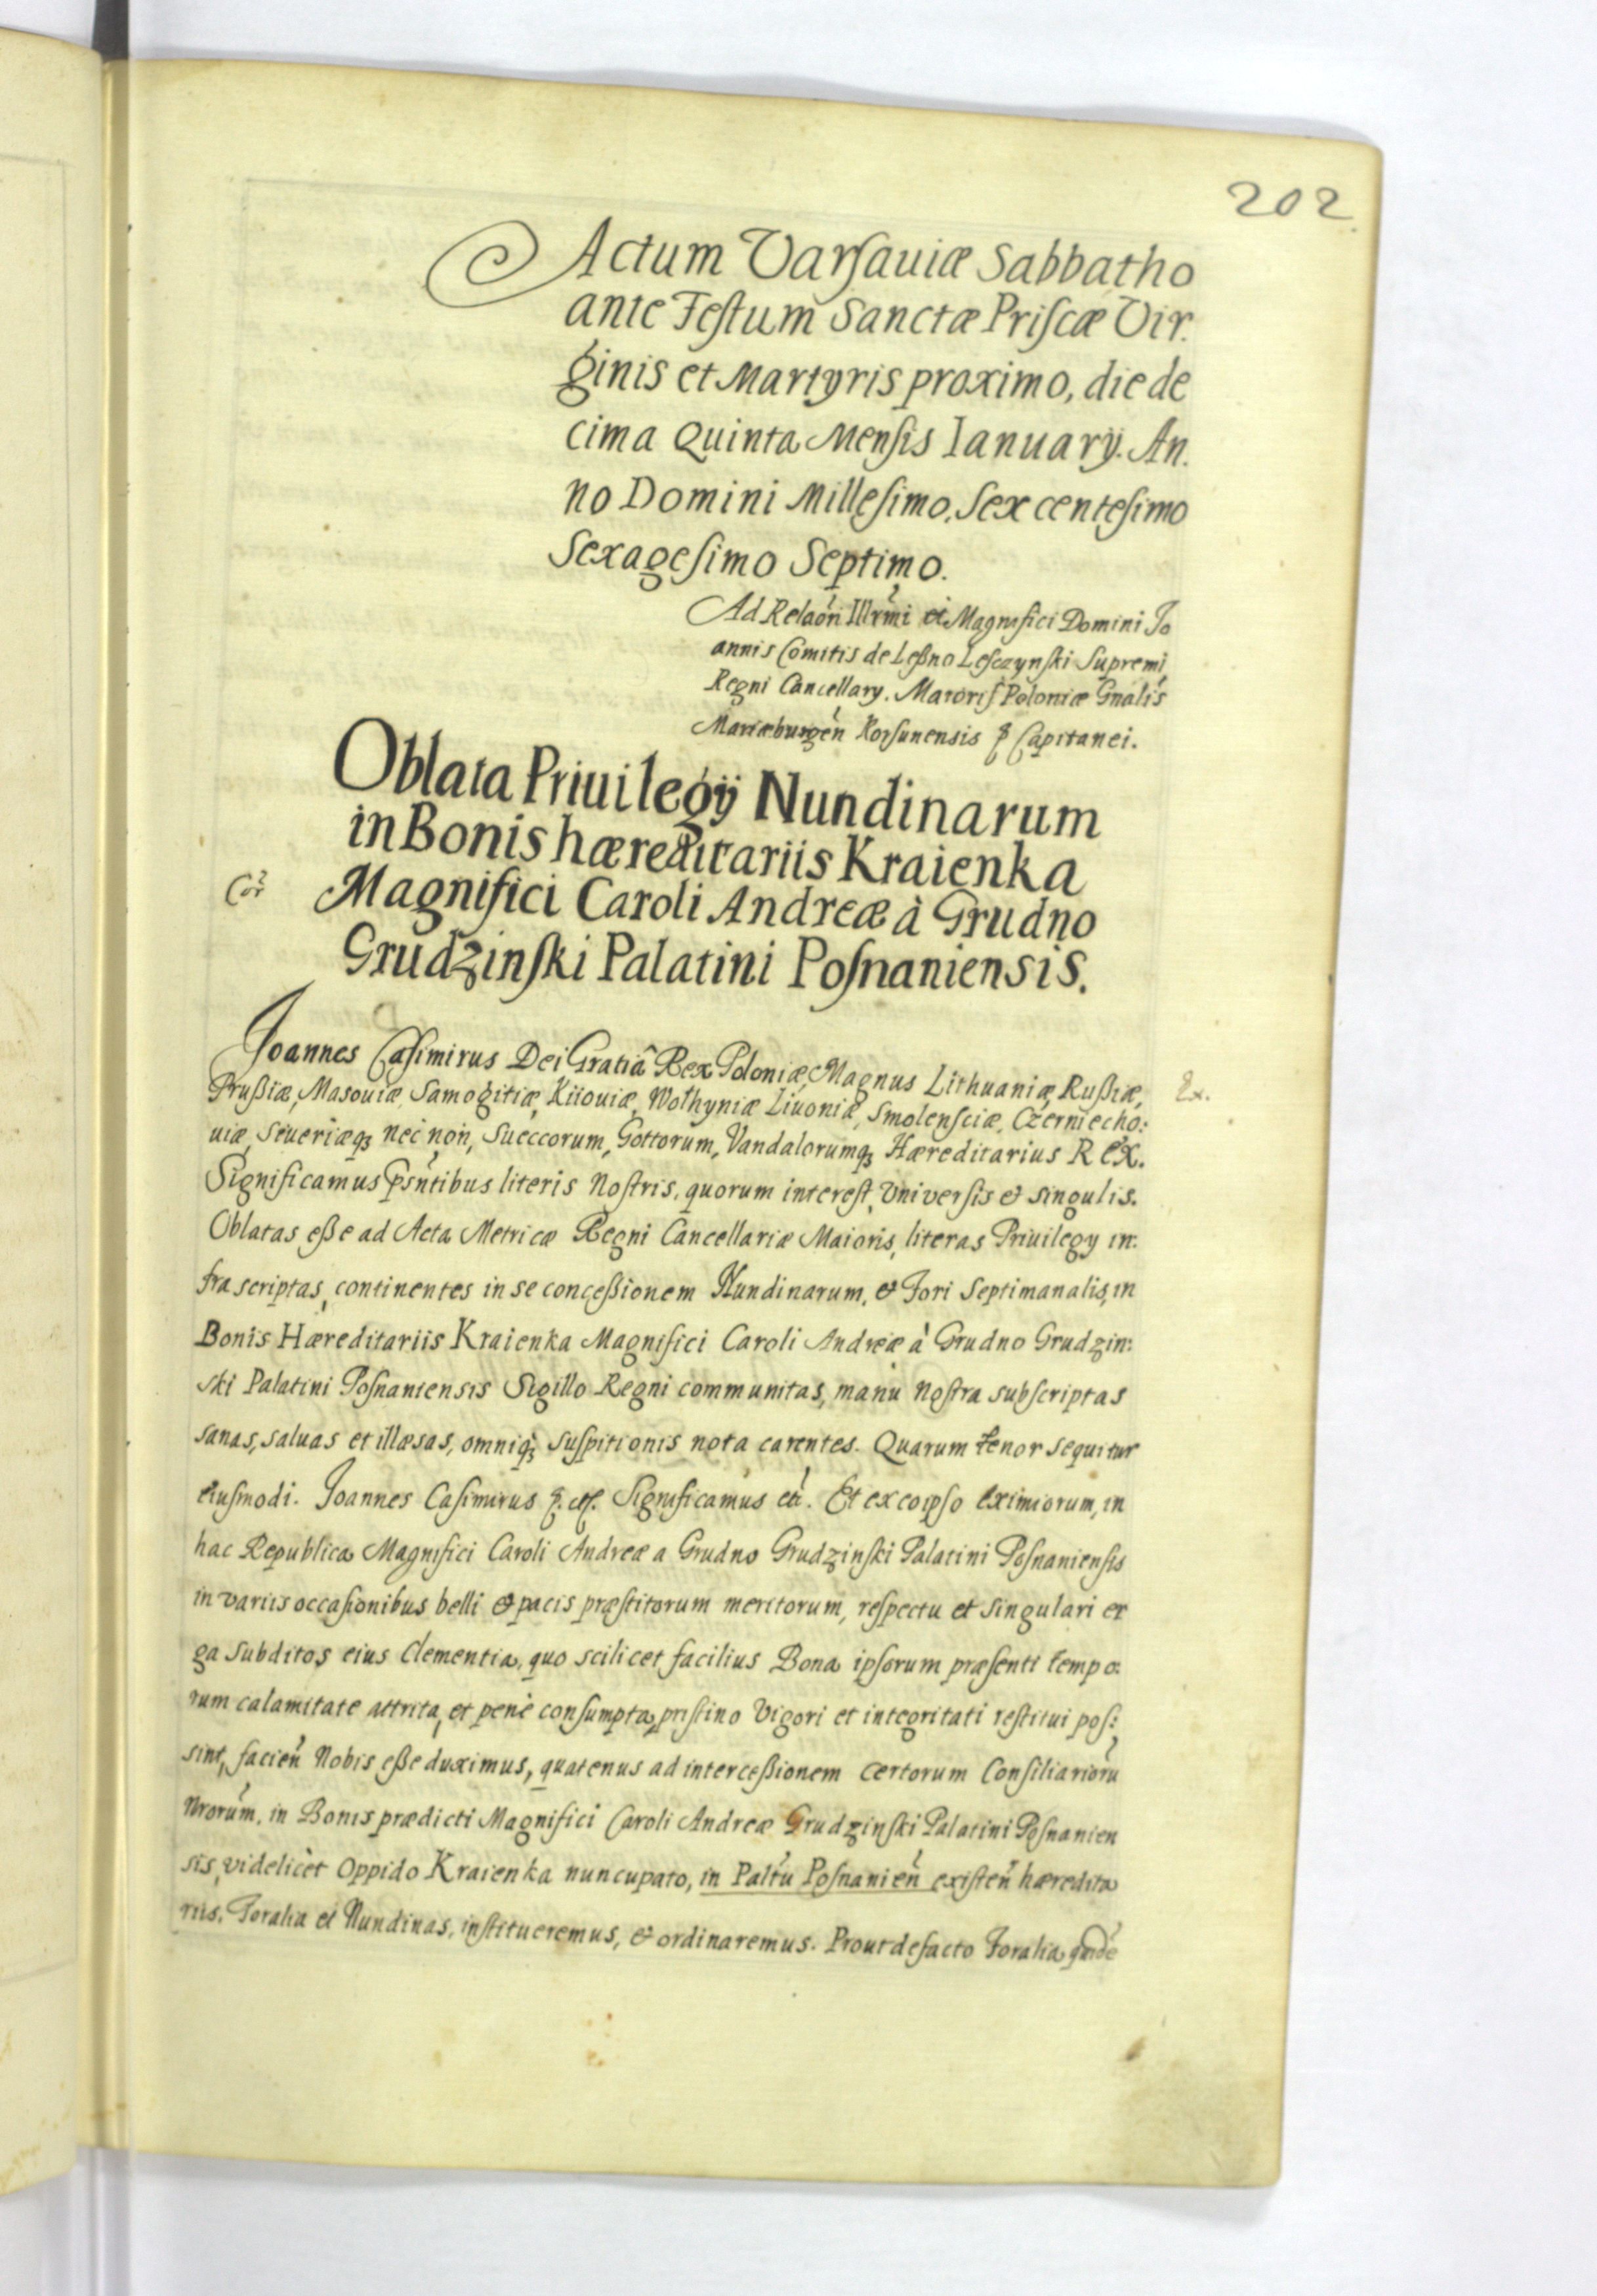 202
Actum Varsauiæ Sabbatho
ante Festum Sanctæ Priscæ Vir.
ginis et Martyris proximo, die de
cima Quinta Mensis Ianuarÿ. An.
no Domini Millesimo, Sex centesimo
Sexagesimo Septimo.
Ad Relaōn Illrmi et Magnifici Domini Jo
annis Comitis de Leßno Lesczynski Supremi
Regni Cancellarÿ. Maioris Poloniæ Gnalis
Mariæburgen Korsunensis Capitanei.
Oblata Priuilegÿ Nundinarum
in Bonis hæreditariis Kraienka
Cor Magnifici Caroli Andreæ à Grudno
Grudzinski Palatini Posnaniensis.
Joannes Casimirus Dei Gratiâ Rex Poloniæ, Magnus Lithuaniæ, Rußiæ, Ex.
Prußiæ, Masouiæ, Samogitiæ, Kiiouiæ, Wolhyniæ Liuoniæ, Smolensciæ, Czerniecho:
uiæ, Seueriæq₃ nec non, Sueccorum, Gottorum, Vandalorumq₃ Hæreditarius Rex.
Significamus Psntibus literis Nostris, quorum interest, Vniversis & singulis.
Oblatas eße ad Acta Metricæ Regni Cancellariæ Maioris, literas Priuilegÿ in:
fra scriptas, continentes in se conceßionem Nundinarum, & Fori Septimanalis, in
Bonis Hæreditariis Kraienka Magnifici Caroli Andreæ à Grudno Grudzin:
ski Palatini Posnaniensis Sigillo Regni communitas, manu Nostra subscriptas
sanas, saluas et illæsas, omniq₃ suspitionis nota carentes. Quarum tenor sequitur
eiusmodi. Joannes Casimirus Significamus etc. Et ex eo ipso eximiorum, in
hac Republica Magnifici Caroli Andreæ a Grudno Grudzinski Palatini Posnaniensis
in variis occasionibus belli & pacis præstitorum meritorum, respectu et singulari er
ga subditos eius Clementia, quo scilicet facilius Bona ipsorum præsenti tempo:
rum calamitate attrita, et penè consumpta, pristino Vigori et integritati restitui pos:
sint, facien Nobis eße duximus, quatenus ad interceßionem certorum Consiliarioru
Nrorum, in Bonis prædicti Magnifici Caroli Andreæ Grudzinski Palatini Posnanien
sis, videlicet Oppido Kraienka nuncupato, in Paltu Posnanien existen hæredita
riis. Foralia et Nundinas, institueremus, & ordinaremus. Prout de facto Foralia quide